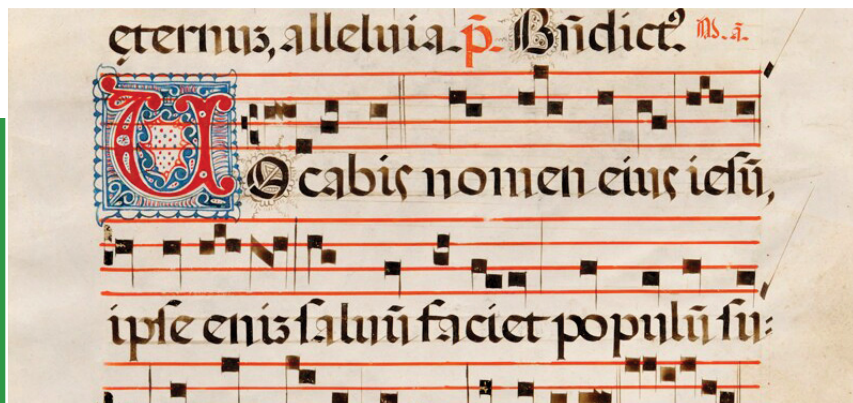 eternus, alleluia. p̄. Bn̄dictꝰ
VOcabis nomen eius iesū,
ipse enim saluū faciet populū su: